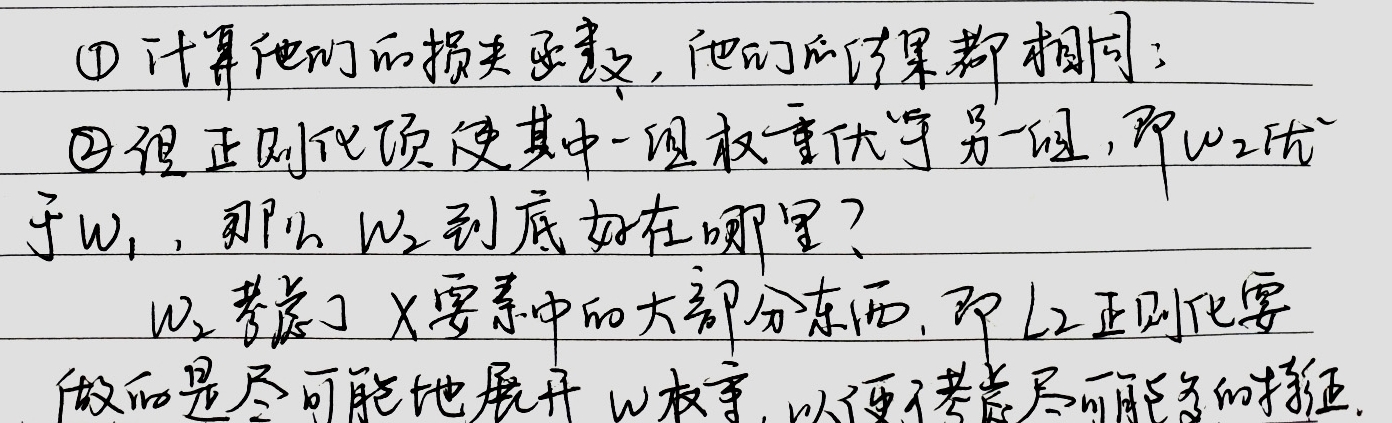 ① 计算他们的损失函数，他们的结果都相同；
② 但正则化项使其中一组权重优于另一组，即W₂优
于W₁，那么 W₂到底好在哪里？
W₂考虑了 X要素中的大部分东西，即 L2正则化要
做的是尽可能地展开 W权重，以便于考虑尽可能多的特征.